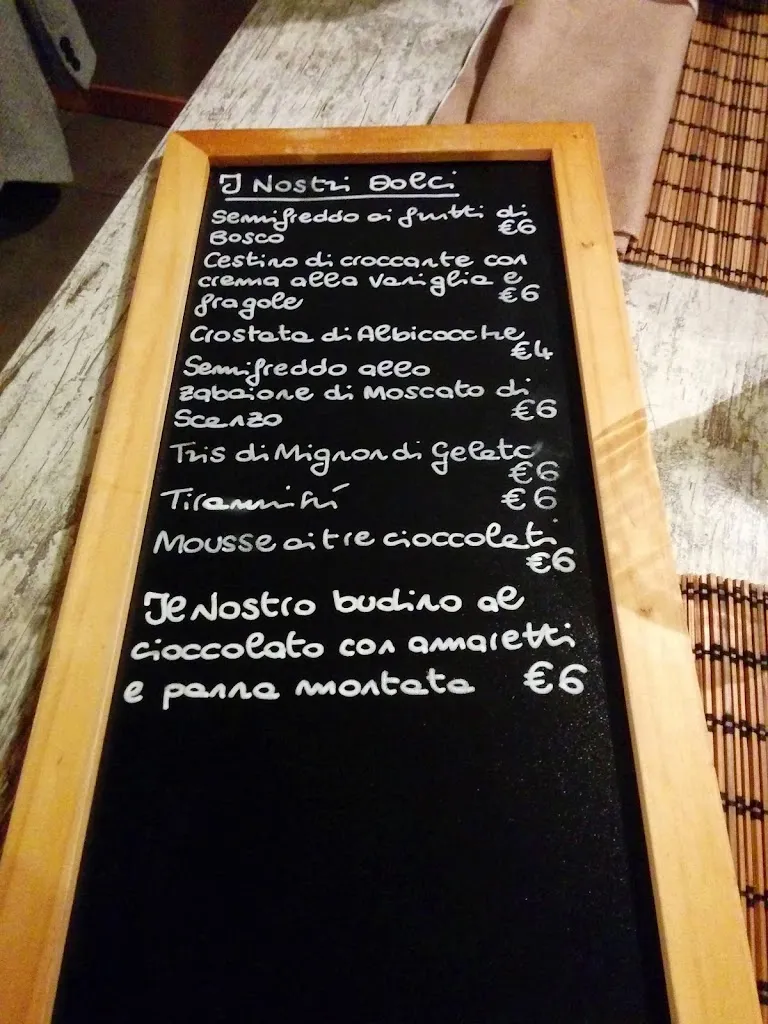 I Nostri Dolci
Semifreddo ai frutti di
Bosco €6
Cestino di croccante con
crema alla vaniglia e
fragole €6
Crostata di Albicocche
€4
Semifreddo allo
zabaione di Moscato di
Scanzo €6
Tris di Mignon di Gelato
€6
Tiramisù €6
Mousse ai tre cioccolati
€6
Il Nostro budino al
cioccolato con amaretti
e panna montata €6